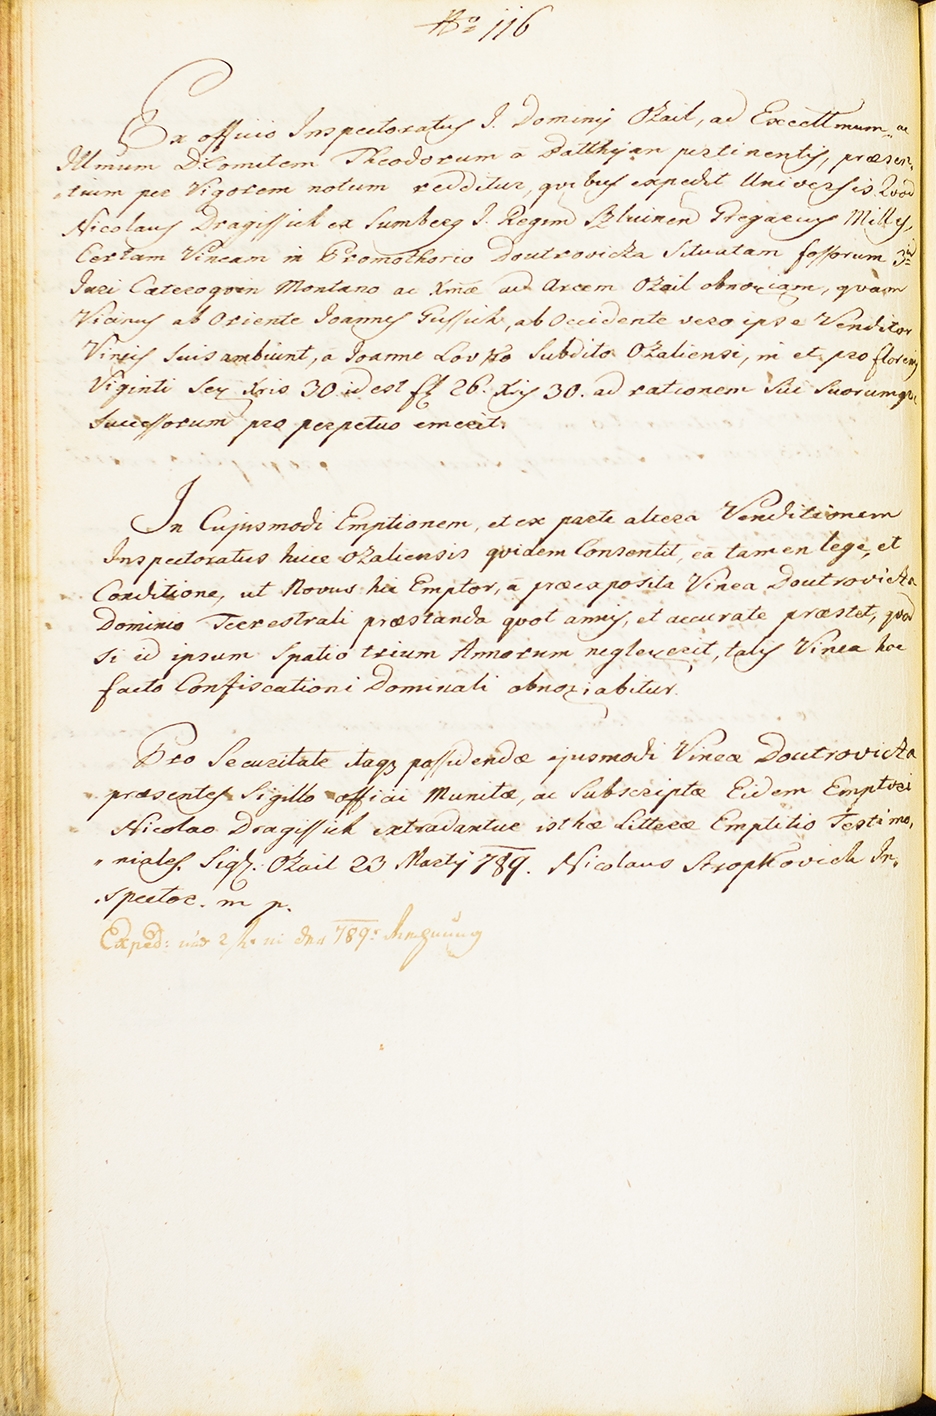 Nro 116
Ex officio Inspectoratus I. Dominij Ozail, ad Excellmum ac
Illmum D. Comitem Theodorum a Batthyan pertinentis, præsen-
tium per Vigorem notum redditur, quibus expedit Universis. Quod
Nicolaus Dragissich ex Sumberg I. Regim Szluinen Gregarius Miles,
Certam Vineam in Promothorio Doutrovicka Situatam fossorum 3um
Juri Cateroquin Montano ac Xmæ ad Arcem Ozail obnoxiam, quam
Vicinus ab Oriente Joannes Gussich, ab Occidente vero ipse Venditor
Vineis Suis ambiunt, a Joanne Lovko Subdito Ozaliensi, in et pro florenis
Viginti Sex Xris 30 id est ff 26. Xris 30. ad rationem Sui Suorumque
Successorum pro perpetuo emerit.
In Cujusmodi Emptionem, et ex parte altera Venditionem
Inspectoratus huic Ozaliensis quidem Consentit, ea tamen lege, et
Conditione, ut Novus hic Emptor, a præexposita Vinea Doutrovicka
Dominio Terrestrali præstanda quot annis, et accurate præstet, quod
si id ipsum Spatio trium Annorum neglexerit, talis Vinea hoc
facto Confiscationi Dominali obnoxiabitur.
Pro Securitate itaq possidendæ ejusmodi Vineæ Doutrovicka
præsentes Sigillo officii Munitæ, ac Subscriptæ Eidem Emptori
Nicolao Dragissich extradantur isthæ Litteræ Emptitio Testimo-
niales. Sigl: Ozail 23 Martij 789. Nicolaus Stropkovich In-
spector. m p.
Exped: 2 789